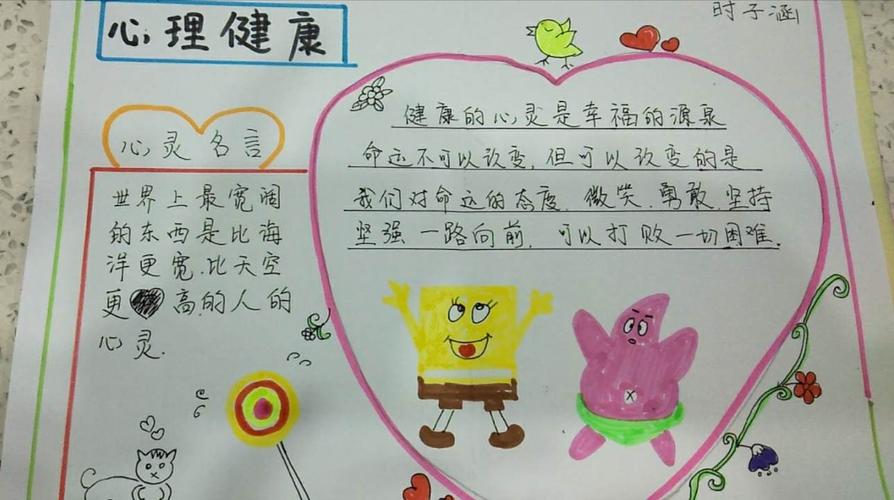 心理健康
时子涵
心灵名言
世界上最宽阔
的东西是比海
洋更宽.比天空
更高的人的
心灵.
健康的心灵是幸福的源泉
命运不可以改变,但可以改变的是
我们对命运的态度.微笑.勇敢.坚持
坚强一路向前,可以打败一切困难.